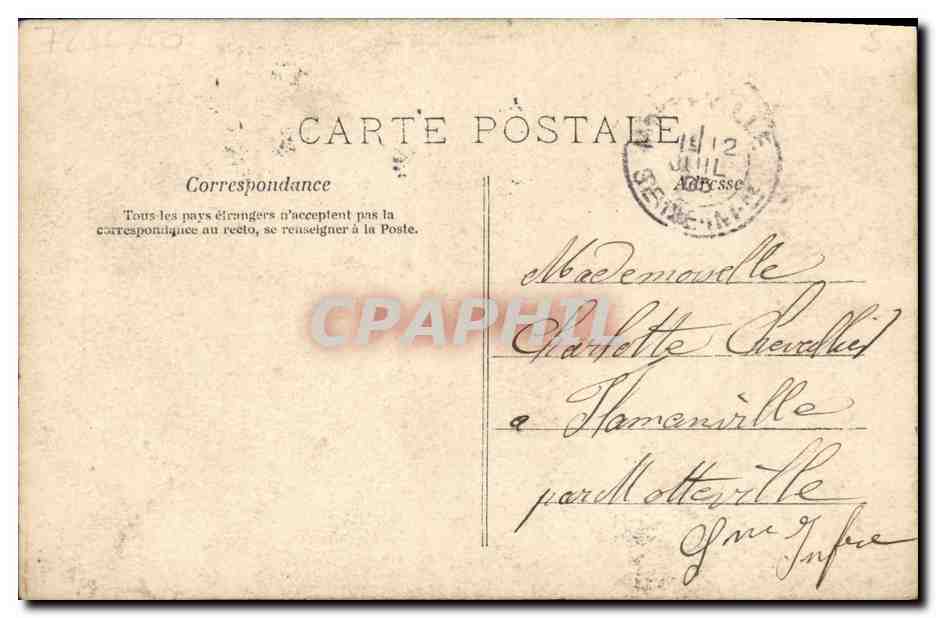 CARTE POSTALE
Correspondance
Tous les pays étrangers n'acceptent pas la
correspondance au recto, se renseigner à la Poste.
MOTTEVILLE
12
JUIL
SEINE-INFRE
Adresse
Mademoiselle
CPAPHIL
Charlotte Chevallier
a Flamanville
par Motteville
Sne Infre